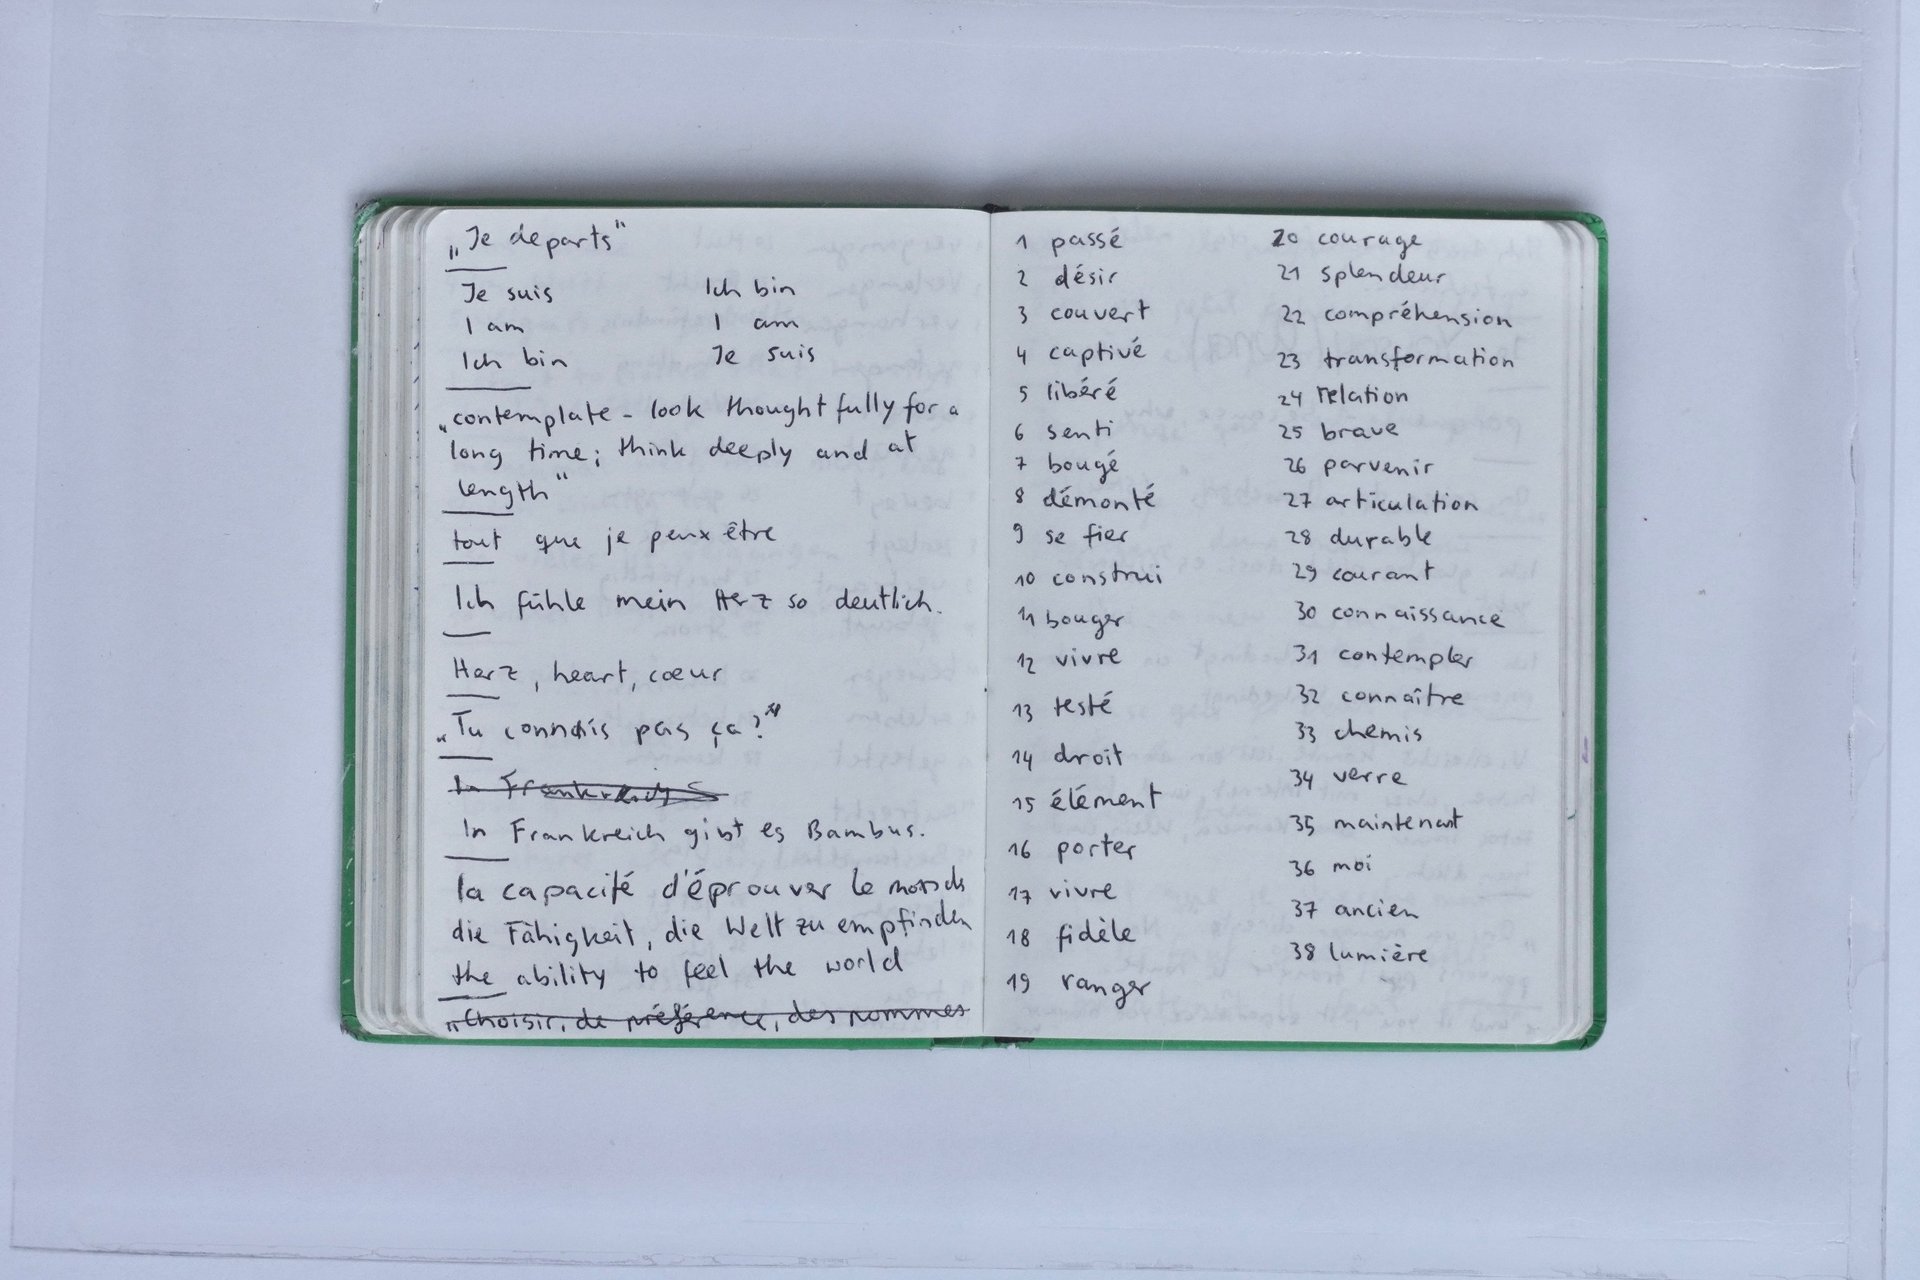 „Je departs"
Je suis
I am
Ich bin
Ich bin
I am
Je suis
„contemplate - look thoughtfully for a
long time; think deeply and at
length"
tout que je peux être
Ich fühle mein Herz so deutlich.
Herz, heart, cœur
„Tu connais pas ça?"
In Frankreich
In Frankreich gibt es Bambus.
la capacité d'éprouver le
die Fähigkeit, die Welt zu empfinden
the ability to feel the world
„Choisir, de préférence, des pommes
1 passé
2 désir
3 couvert
4 captivé
5 libéré
6 senti
7 bougé
8 démonté
9 se fier
10 construi
11 bouger
12 vivre
13 testé
14 droit
15 élément
16 porter
17 vivre
18 fidèle
19 ranger
20 courage
21 splendeur
22 compréhension
23 transformation
24 relation
25 brave
26 parvenir
27 articulation
28 durable
29 courant
30 connaissance
31 contempler
32 connaître
33 chemis
34 verre
35 maintenant
36 moi
37 ancien
38 lumière